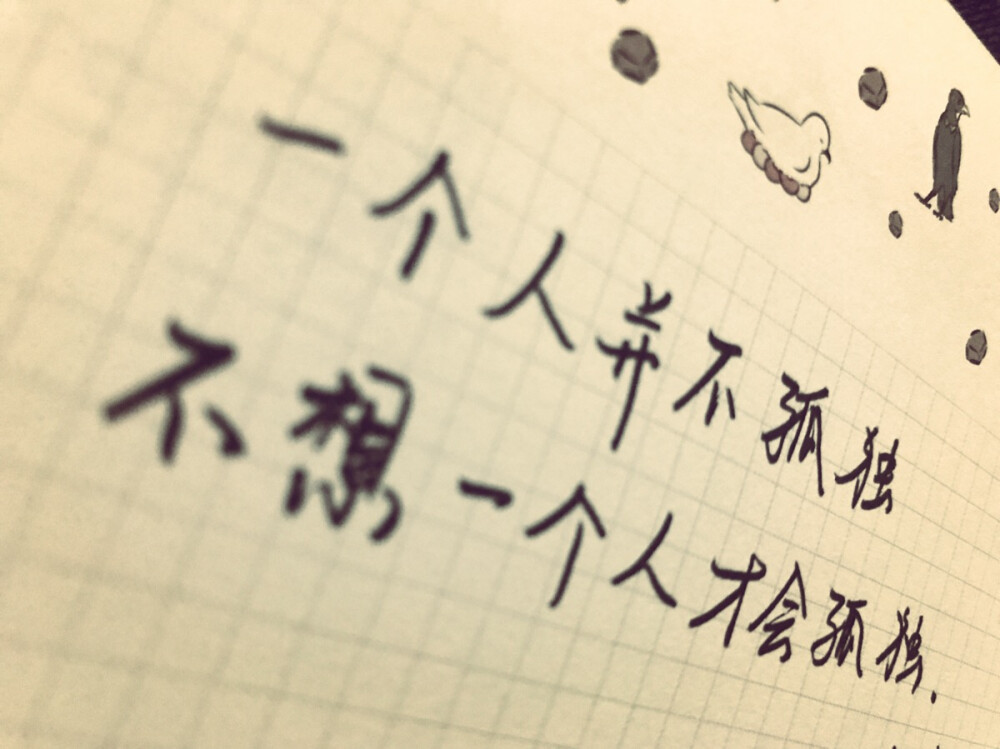 一个人并不孤独
不想一个人才会孤独.